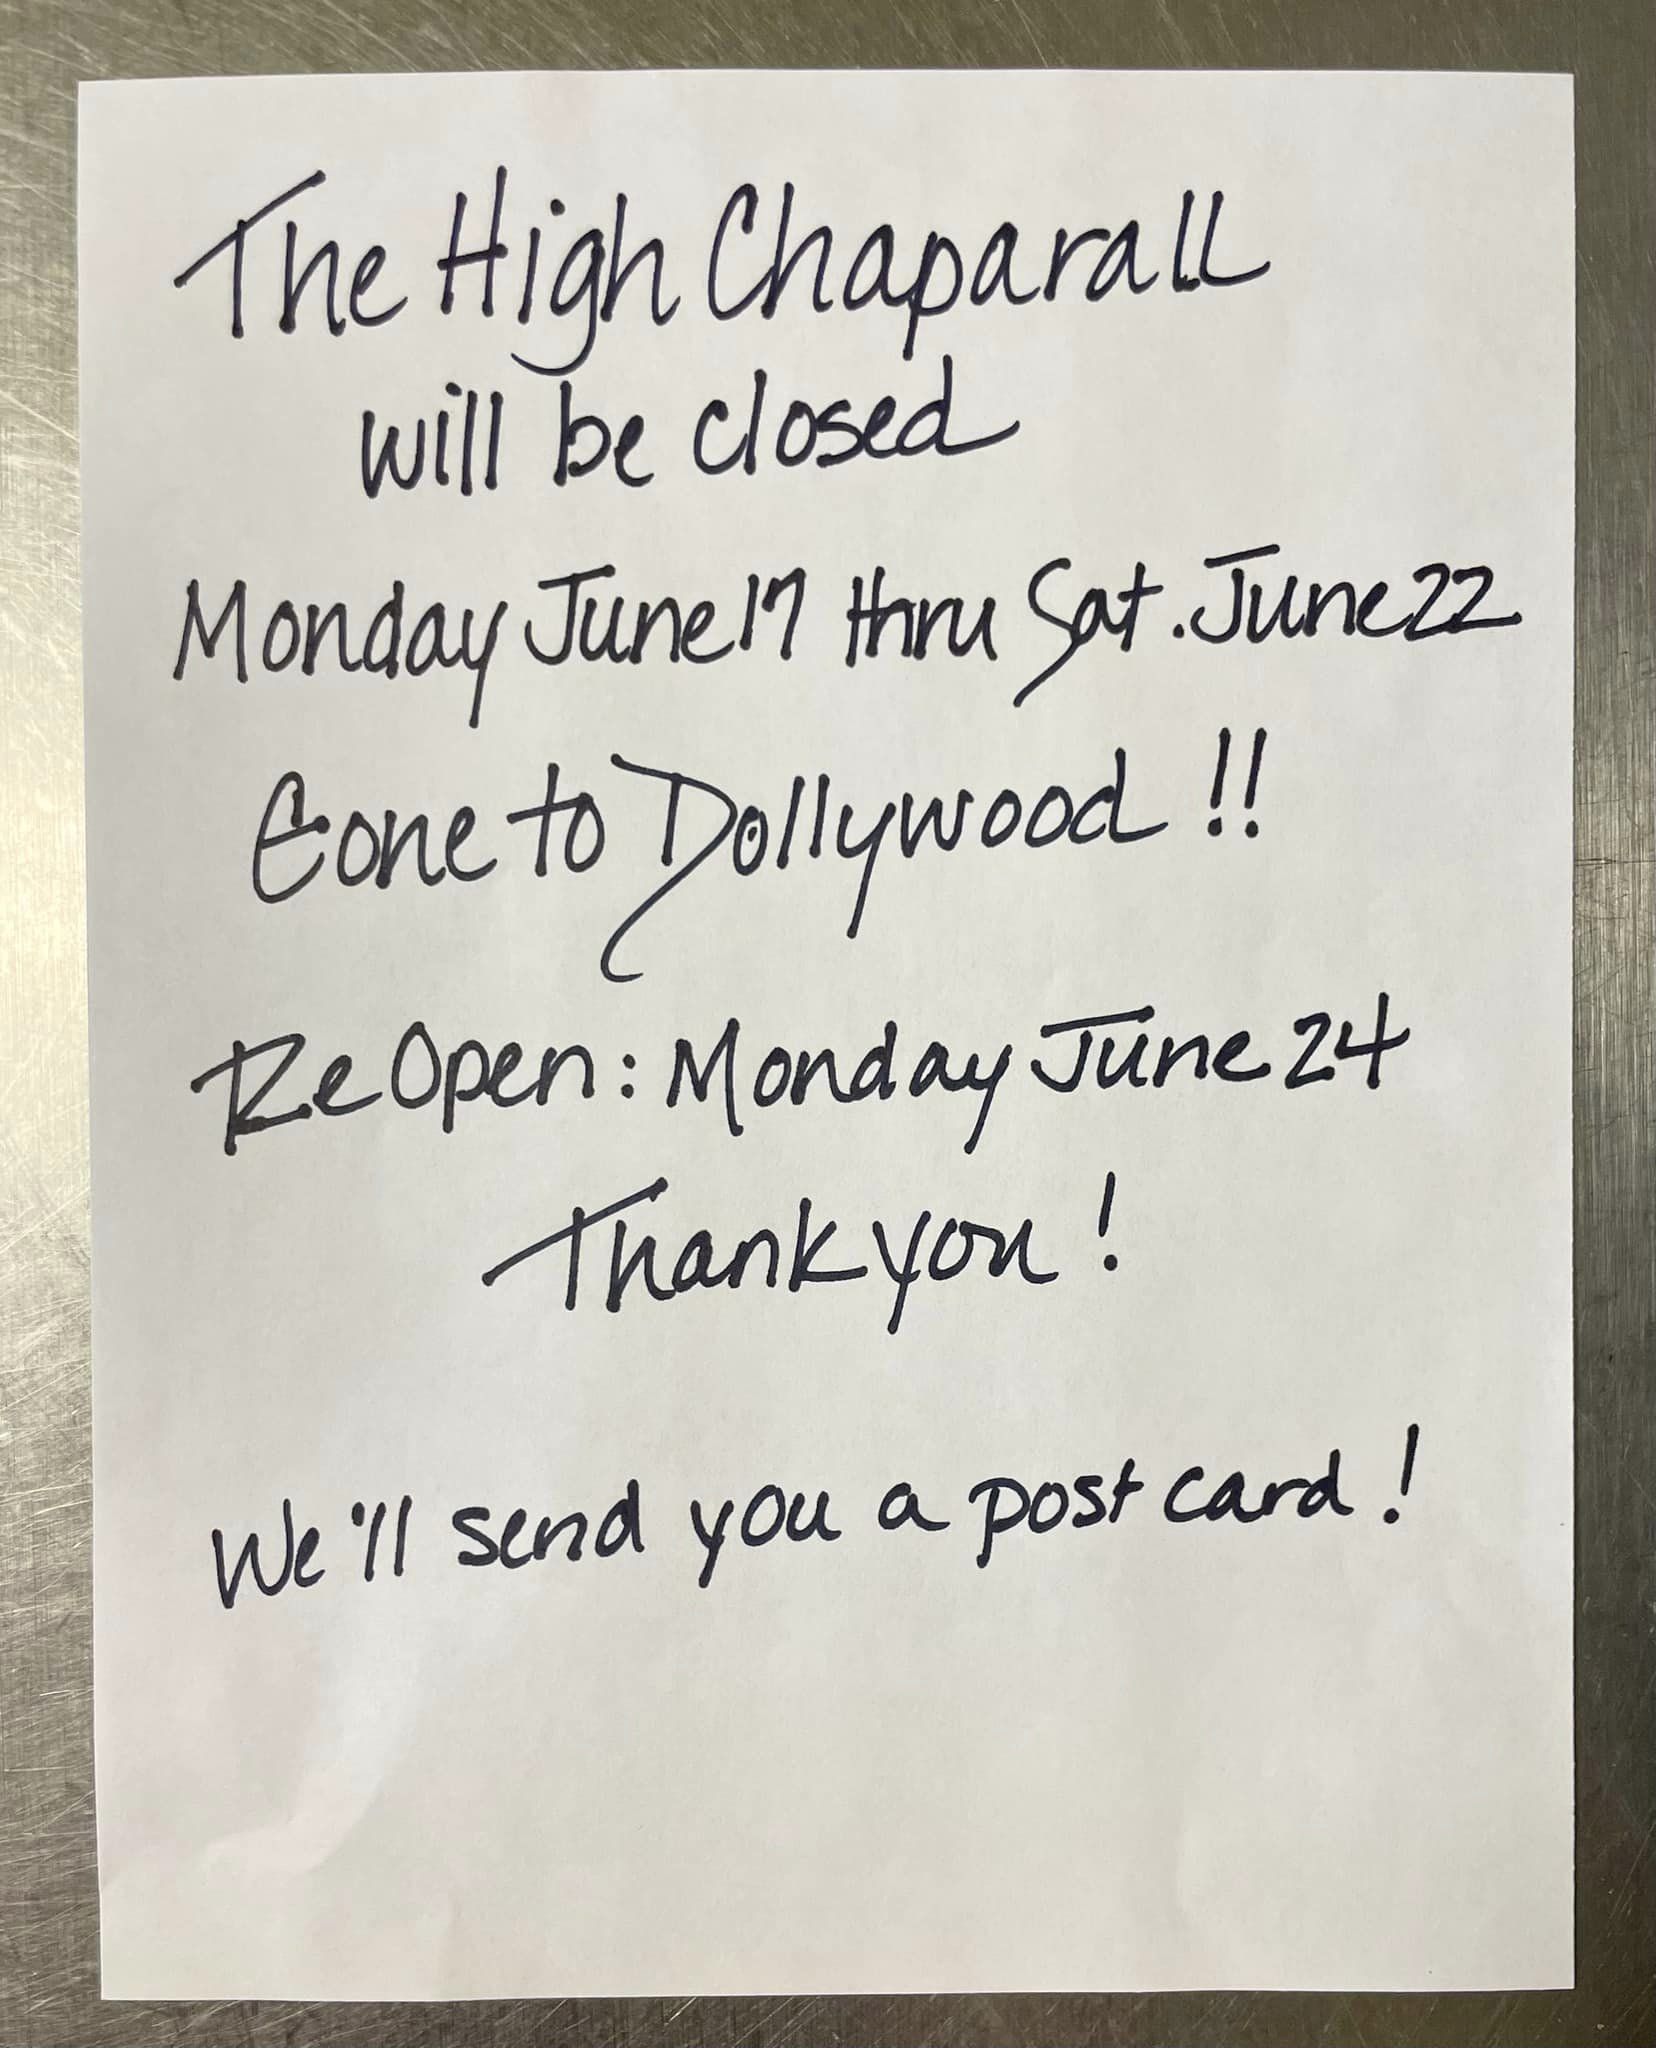 The High Chaparall
will be closed
Monday June 17 thru Sat. June 22
Gone to Dollywood !!
Re Open: Monday June 24
Thank you !
We'll send you a post card !